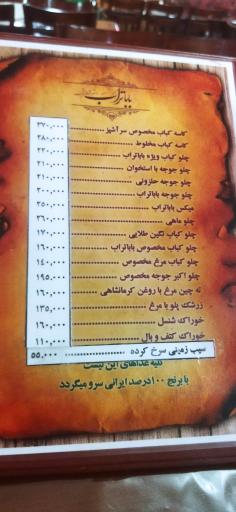 باباتراب
کاسه کباب مخصوص سرآشپز ۳۷۰,۰۰۰
کاسه کباب مخلوط ۲۸۰,۰۰۰
چلو کباب ویژه باباتراب ۲۲۰,۰۰۰
چلو جوجه با استخوان ۲۱۰,۰۰۰
چلو جوجه حلزونی ۲۱۰,۰۰۰
چلو جوجه باباتراب ۲۰۰,۰۰۰
میکس باباتراب ۲۵۰,۰۰۰
چلو ماهی ۲۶۰,۰۰۰
چلو کباب نگین طلایی ۱۷۰,۰۰۰
چلو کباب مخصوص باباتراب ۱۶۰,۰۰۰
چلو کباب مرغ مخصوص ۱۴۰,۰۰۰
چلو اکبر جوجه مخصوص ۱۹۵,۰۰۰
ته چین مرغ با روغن کرمانشاهی ۱۶۰,۰۰۰
زرشک پلو با مرغ ۱۳۵,۰۰۰
خوراک شنسل ۱۶۰,۰۰۰
خوراک کتف و بال ۱۱۰,۰۰۰
سیب زمینی سرخ کرده ۵۵,۰۰۰
کلیه غذاهای این لیست
با برنج ۱۰۰درصد ایرانی سرو میگردد